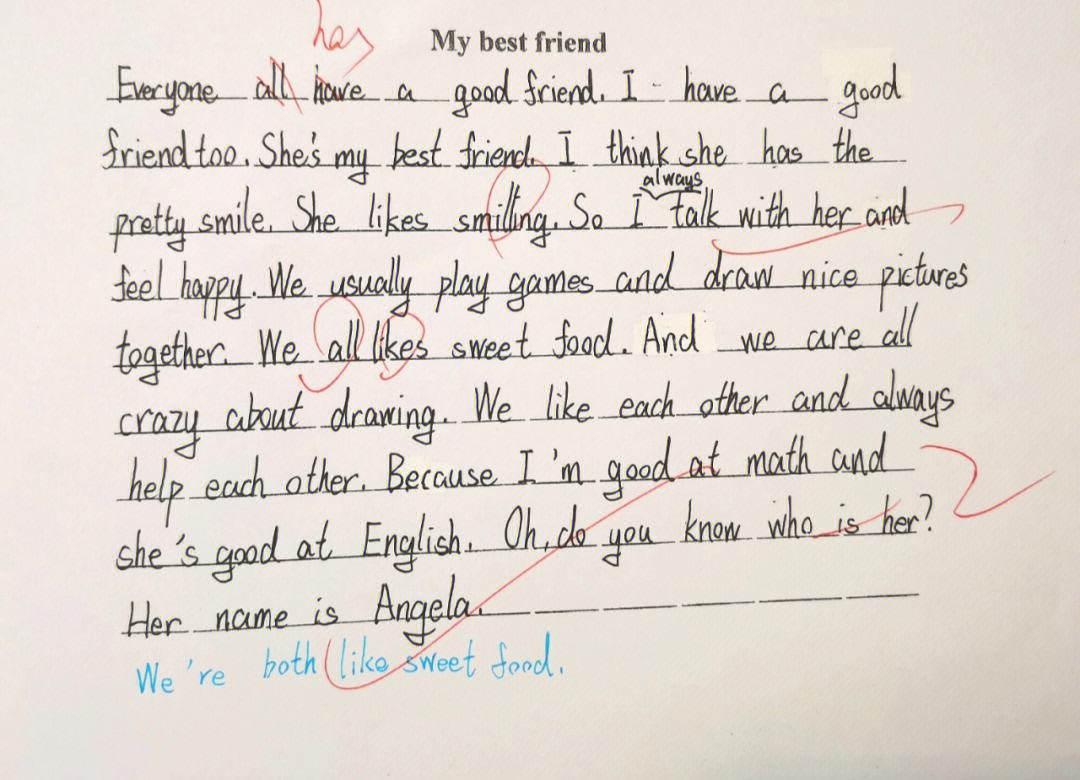 has
My best friend
Everyone all have a good friend. I have a good
friend too. She's my best friend. I think she has the
always
pretty smile. She likes smilling. So I talk with her and
feel happy. We usually play games and draw nice pictures
together. We all likes sweet food. And we are all
crazy about drawing. We like each other and always
help each other. Because I'm good at math and
she's good at English. Oh, do you know who is her?
Her name is Angela.
We're both like sweet food.